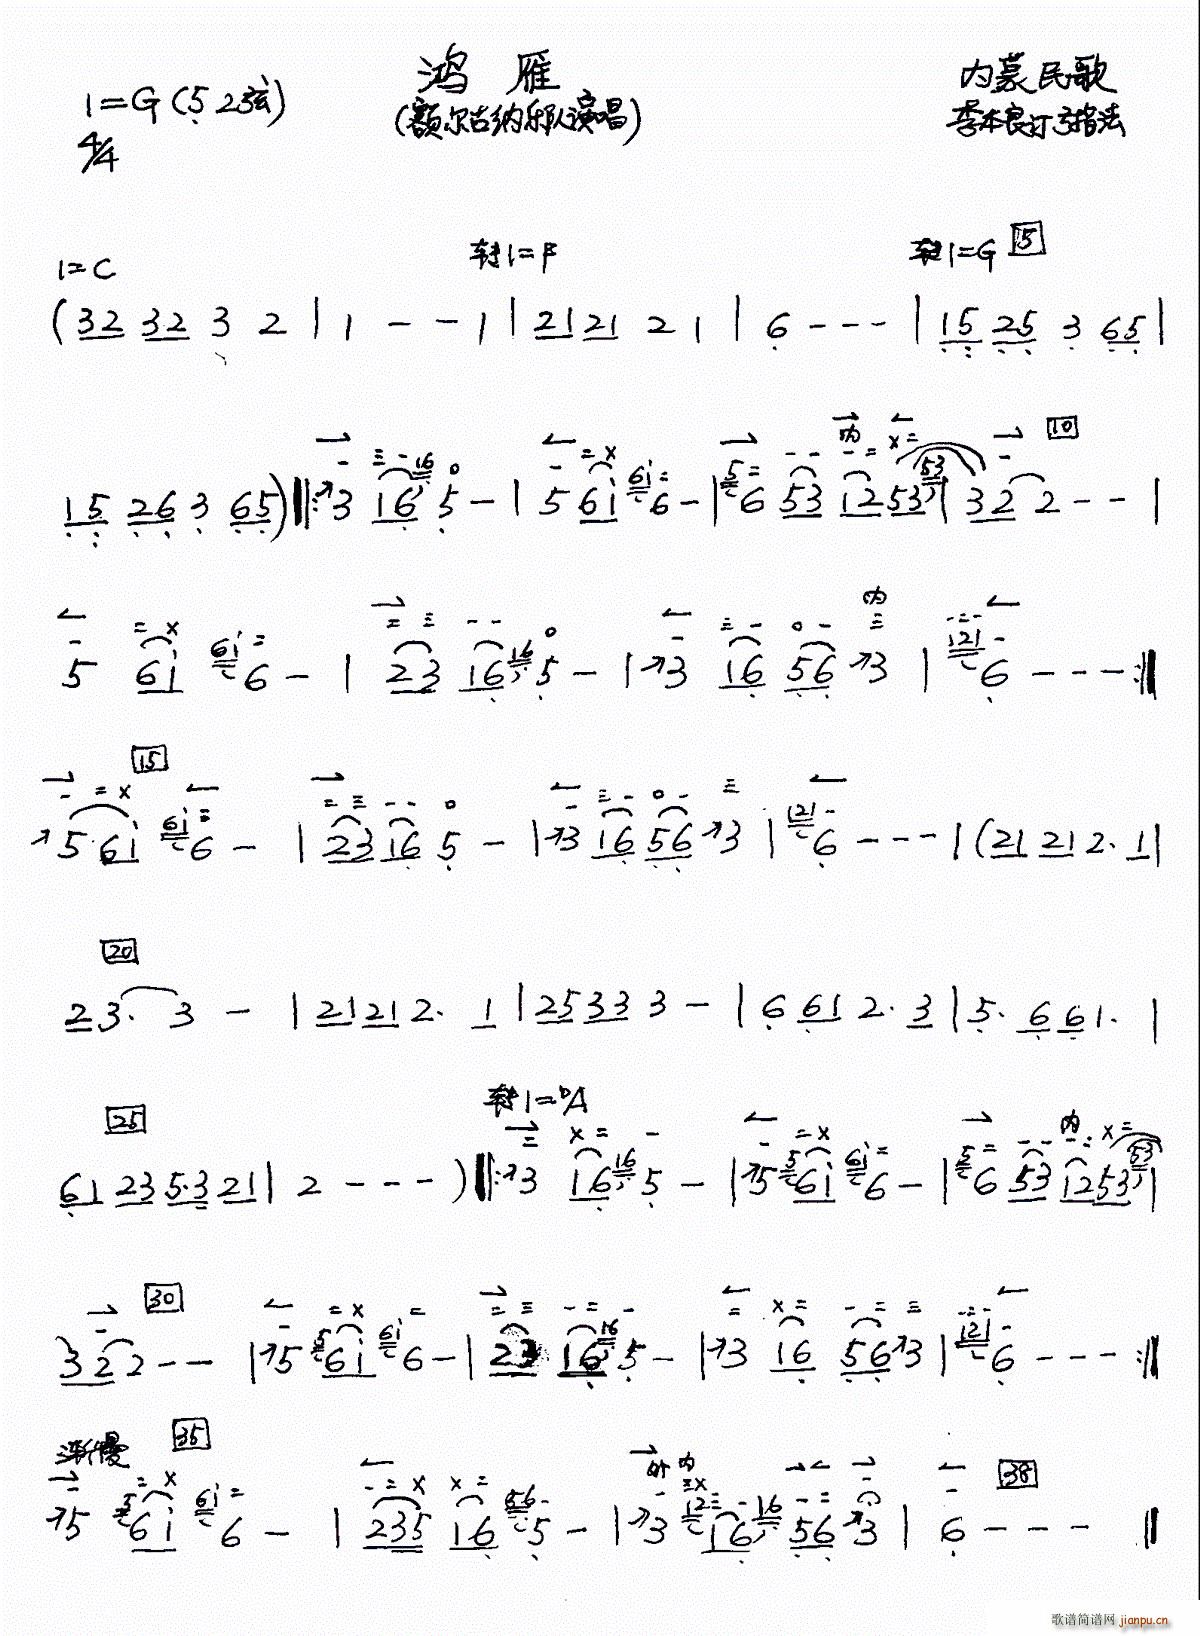 鸿雁
(额尔古纳乐队演唱)
1=G(5 2弦)
4/4
内蒙民歌
李本良订弓指法
1=C 转1=F 转1=G 5
(32 32 3 2 | 1 - - 1 | 21 21 2 1 | 6 - - - | 15 25 3 65 |
内 10
15 26 3 65) ‖: 3 16 16 5 - | 5 61 61 6 - | 5 6 53 12 53 53 | 32 2 - - |
内
5 61 61 6 - | 23 16 16 5 - | 3 16 56 3 | 121 6 - - - :‖
15
5 61 61 6 - | 23 16 5 - | 3 16 56 3 | 121 6 - - - | (21 21 2. 1 |
20
23. 3 - | 21 21 2. 1 | 25 33 3 - | 6 61 2. 3 | 5. 6 61. |
25 转1=bA 内
61 23 5.3 21 | 2 - - - ) ‖: 3 16 16 5 - | 5 5 61 61 6 - | 5 6 53 12 53 53 |
30
32 2 - - | 5 5 61 61 6 - | 23 16 16 5 - | 3 16 56 3 | 121 6 - - - :‖
渐慢 35 外 内 38
5 5 61 61 6 - | 235 16 56 5 - | 3 12 16 16 56 3 | 6 - - - ‖
歌谱简谱网 jianpu.cn